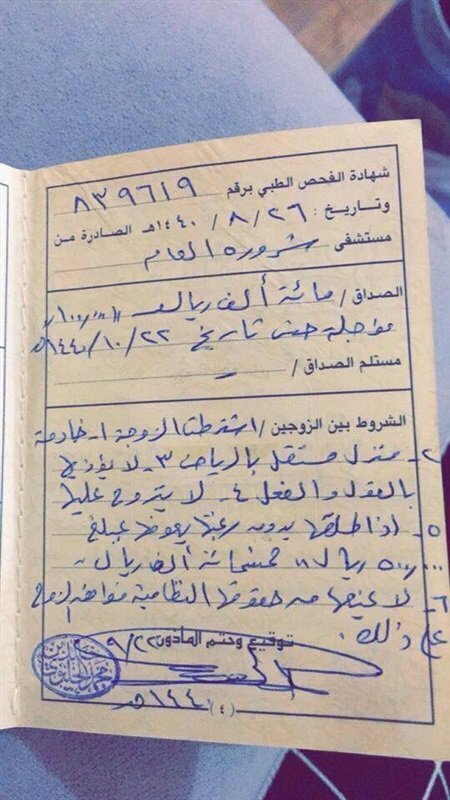 شهادة الفحص الطبي برقم ٨٣٩٦١٩
وتاريخ : ٢٦ / ٨ / ١٤٤٠هـ الصادرة من
مستشفى شروره العام
الصداق / مائة ألف ريال ١٠٠,٠٠٠
مؤجلة حتى تاريخ ٢٢ /١٠/ ١٤٤٠هـ
مستلم الصداق /
الشروط بين الزوجين / اشترطت الزوجة ١- خادمة
٢- منزل مستقل بالرياض ٣- لا يؤذيها
بالقول والفعل ٤- لا يتزوج عليها
٥- إذا طلقها بدون رغبتها يعوضها بمبلغ
٥٠٠,٠٠٠ ريال خمسمائة ألف ريال
٦- لا يمنعها من حقوقها النظامية فوافق الزوج
على ذلك .
توقيع وختم المأذون ٩/٢٢
١٤٤٠هـ
(٤)